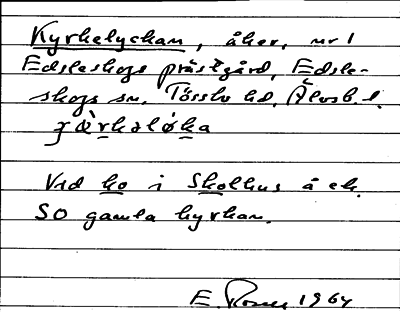 Kyrkelyckan, åker, nr 1
Edsleskogs prästgård, Edsle-
skogs sn, Tössbo hd, Älvsb. l.
Vid ko i Skolhus å ek.
SO gamla kyrkan.
E. 1964